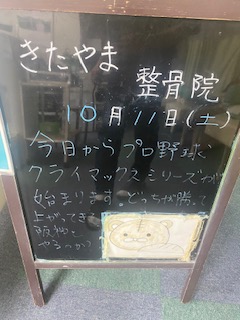 きたやま
整骨院
10月11日(土)
今日からプロ野球
クライマックスシリーズが
始まります。どっちが勝って
上がってき
阪神と
やるのか?